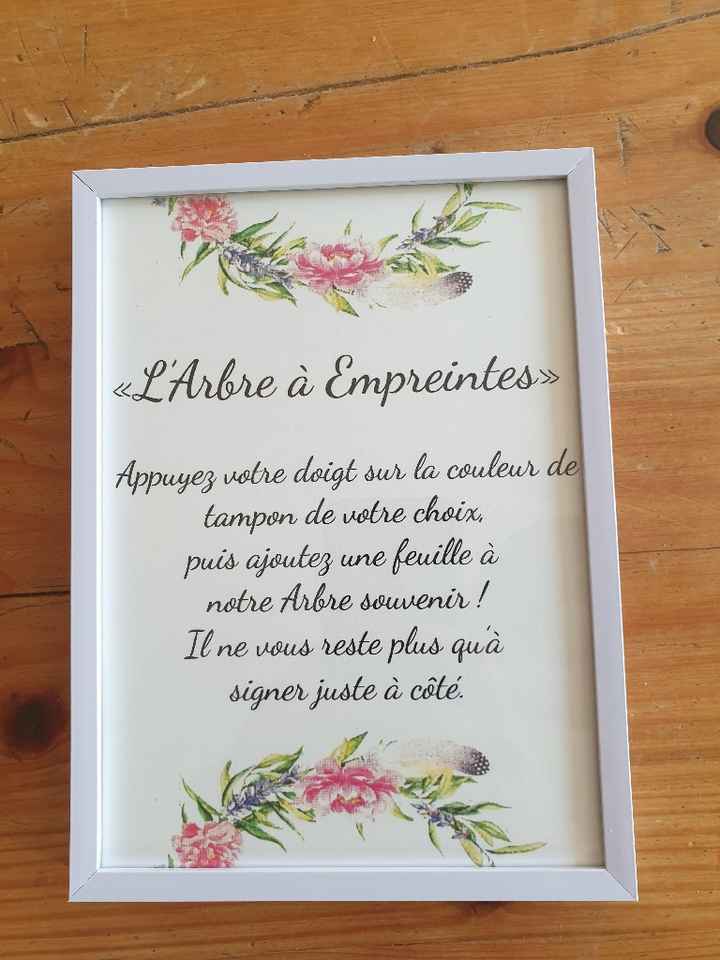 «L'Arbre à Empreintes»
Appuyez votre doigt sur la couleur de
tampon de votre choix,
puis ajoutez une feuille à
notre Arbre souvenir !
Il ne vous reste plus qu'à
signer juste à côté.